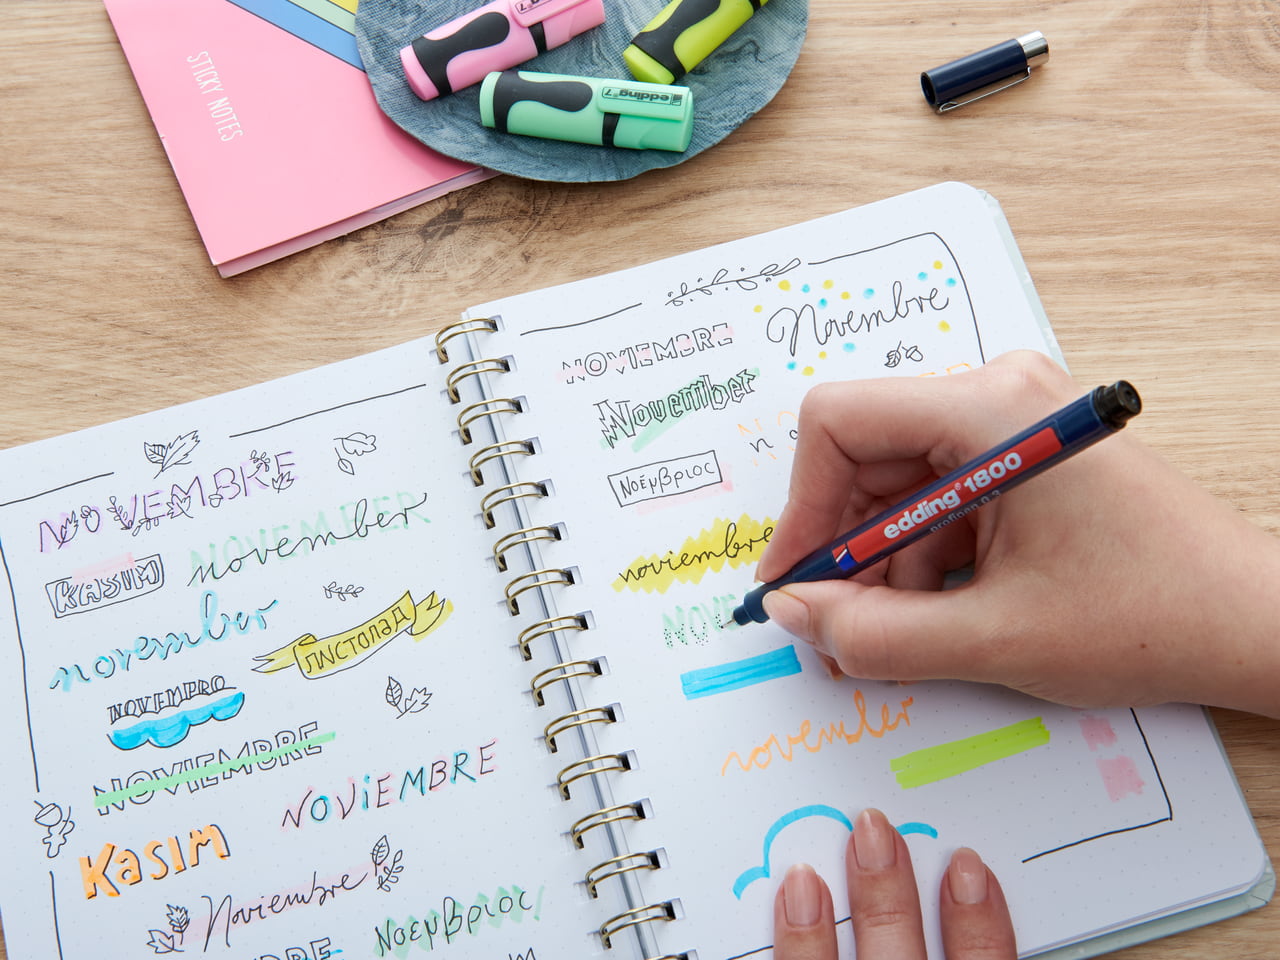 STICKY NOTES
edding 7
edding 7
NOVEMBRE
KASIM
NOVEMBER
november
november
ЛИСТОПАД
NOVEMPRO
NOVIEMBRE
NOVIEMBRE
Kasim
Noviembre
Νοέμβριος
NOVIEMBRE
Novembre
November
Νοέμβριος
noviembre
NOVE
november
edding 1800
profipen 0.3